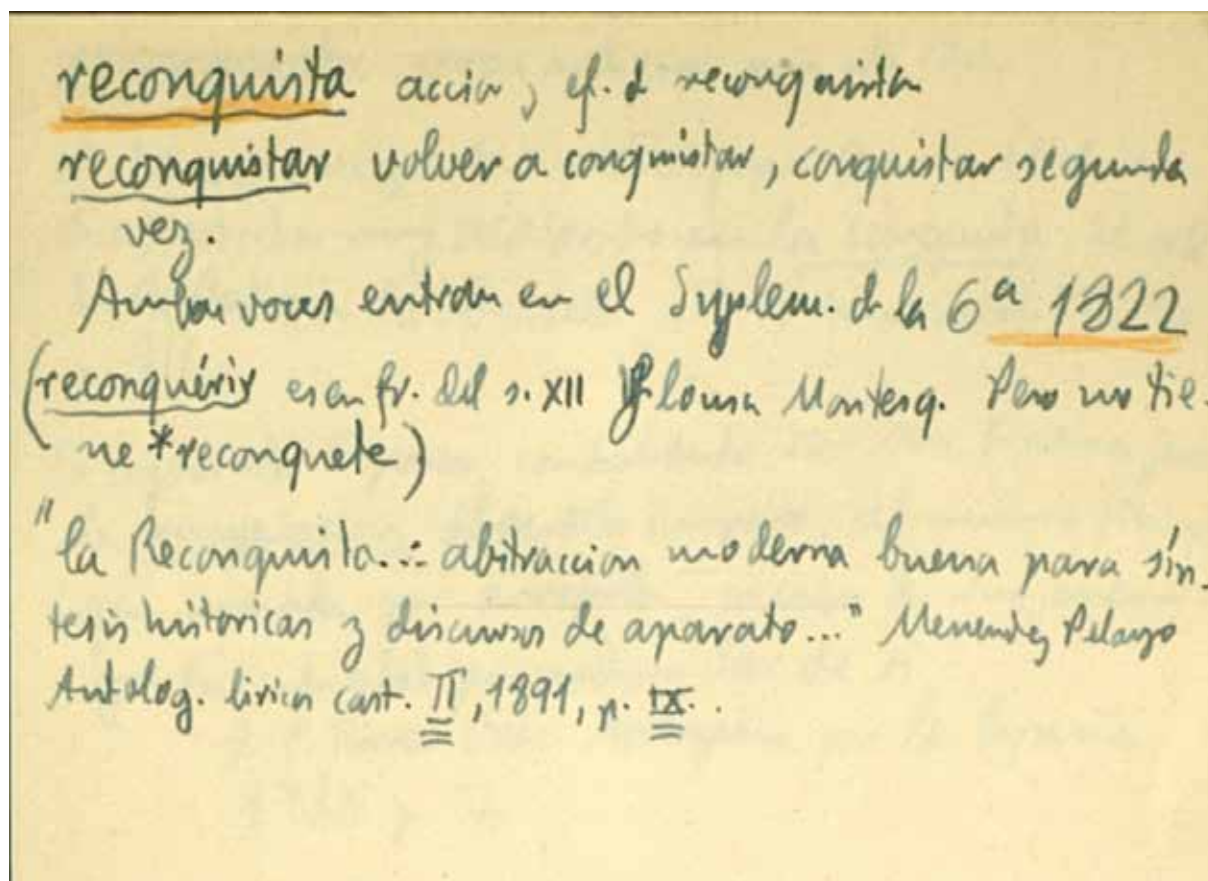 reconquista accion y ef. d reconquistar
reconquistar volver a conquistar, conquistar segunda
vez.
Ambas voces entran en el Suplem. de la 6ª 1822
(reconquérir es en fr. del s. XII y lo usa Montesq. Pero no tie-
ne *reconquete)
"la Reconquista... abstraccion moderna buena para sín-
tesis historicas y discursos de aparato..." Menendez Pelayo
Antolog. liricos cast. II, 1891, p. IX.